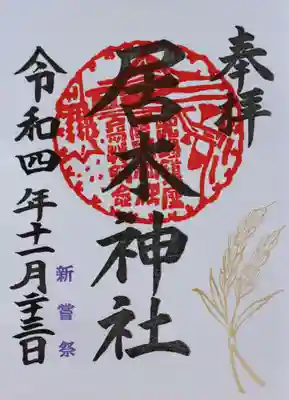 奉拝
居木神社
令和四年十一月二十三日
新嘗祭